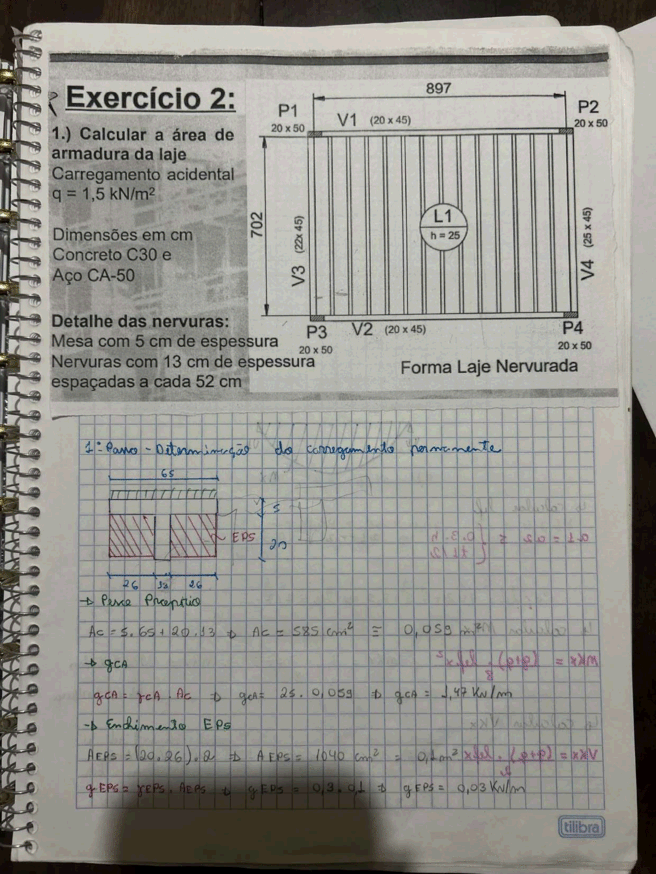 Exercício 2:
1.) Calcular a área de
armadura da laje
Carregamento acidental
q = 1,5 kN/m²
Dimensões em cm
Concreto C30 e
Aço CA-50
Detalhe das nervuras:
Mesa com 5 cm de espessura
Nervuras com 13 cm de espessura
espaçadas a cada 52 cm
897
P1
20 x 50
V1 (20 x 45)
P2
20 x 50
702
V3 (22x 45)
L1
h = 25
V4 (25 x 45)
P3
20 x 50
V2 (20 x 45)
P4
20 x 50
Forma Laje Nervurada
1º Passo - Determinação do carregamento permanente
65
5
EPS
20
26 13 26
→ Peso Proprio
Ac = 5.65 + 20.13 → Ac = 585 cm² ≅ 0,059 m²
→ gCA
gCA = γCA . Ac → gCA = 25 . 0,059 → gCA = 1,47 KN/m
→ Enchimento EPS
AEPS = (20.26).2 → AEPS = 1040 cm² = 0,1 m²
gEPS = γEPS . AEPS → gEPS = 0,3 . 0,1 → gEPS = 0,03 KN/m
tilibra